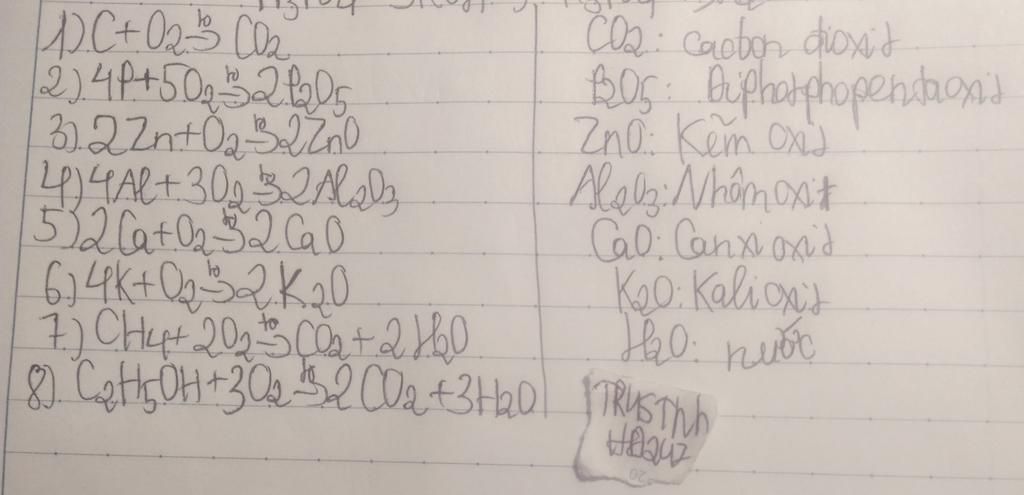 1) C + O2 t° → CO2
2) 4P + 5O2 t° → 2P2O5
3) 2Zn + O2 t° → 2ZnO
4) 4Al + 3O2 t° → 2Al2O3
5) 2Ca + O2 t° → 2CaO
6) 4K + O2 t° → 2K2O
7) CH4 + 2O2 t° → CO2 + 2H2O
8) C2H5OH + 3O2 t° → 2CO2 + 3H2O
CO2: cacbon đioxit
P2O5: Điphotphopentaoxit
ZnO: Kẽm oxit
Al2O3: Nhôm oxit
CaO: Canxi oxit
K2O: Kali oxit
H2O: nước